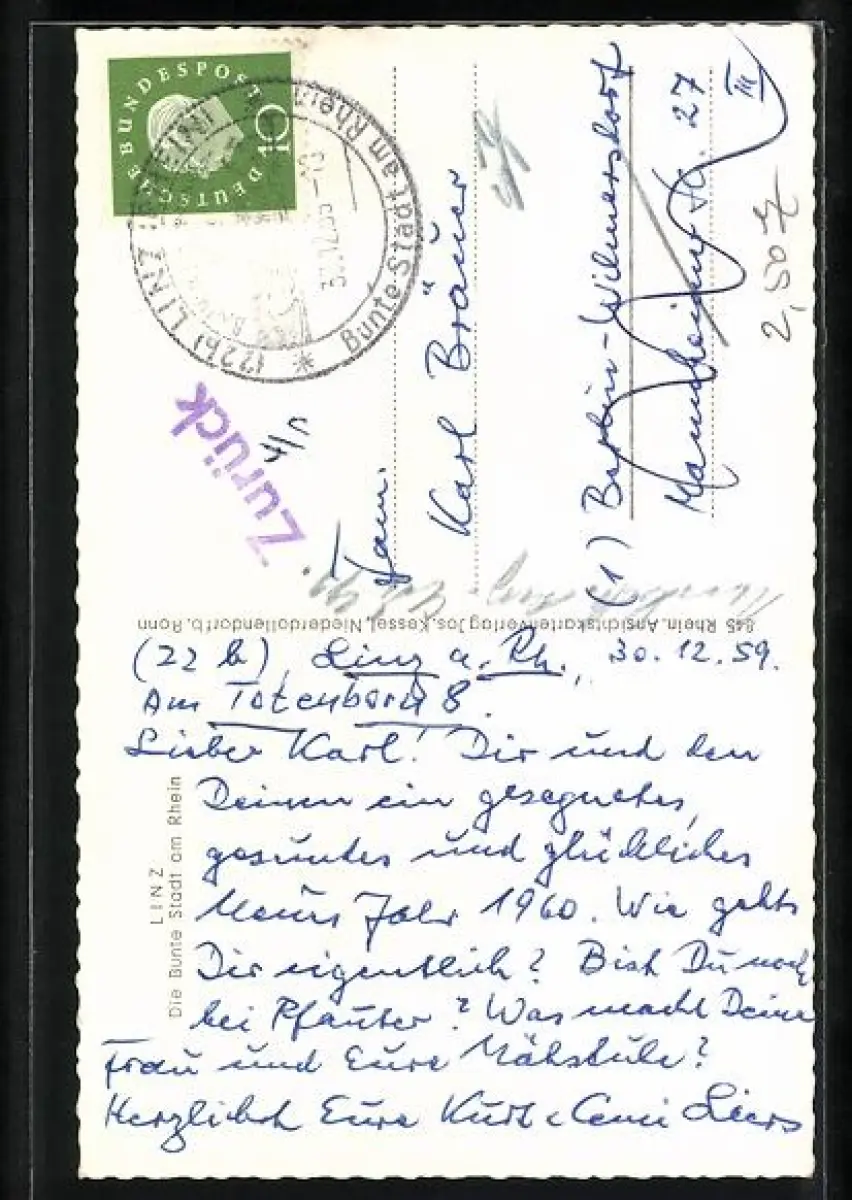 DEUTSCHE BUNDESPOST
10
(22b) LINZ
* Bunte Stadt am Rhein
30.12.59-18
Zurück
Fam.
Karl Bräuer
(1) Berlin-Wilmersdorf
Mannheimer Str. 27
III
2,50
845 Rhein. Ansichtskartenverlag Jos. Kessel, Niederdollendorf b. Bonn
(22b), Linz a. Rh., 30.12.59.
Am Totenborn 8.
Lieber Karl! Dir und den
Deinen ein gesegnetes,
gesundes und glückliches
Neues Jahr 1960. Wie gehts
Dir eigentlich? Bist Du noch
bei Pfauter? Was macht Deine
Frau und Eure Nähstube?
Herzlichst Eure Kurt
LINZ
Die Bunte Stadt am Rhein